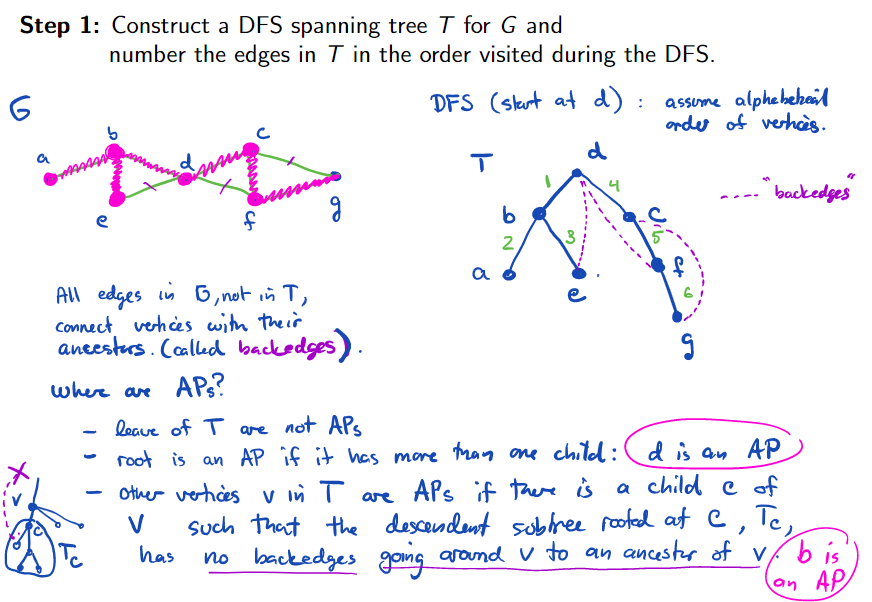 Step 1: Construct a DFS spanning tree T for G and
number the edges in T in the order visited during the DFS.
G
a b c d e f g
DFS (start at d) : assume alphebehail
order of verhcies.
T
d
1 4
b c
2 3 5
a e f
6
g
---- "backedges"
All edges in G, not in T,
connect verhcies with their
ancesters. (called backedges).
where are APs?
- leave of T are not APs
- root is an AP if it has more than one child: d is an AP
- other verhcies v in T are APs if there is a child c of
v such that the descendent subtree rooted at c, Tc,
has no backedges going around v to an ancester of v. b is
an AP
v
c
Tc